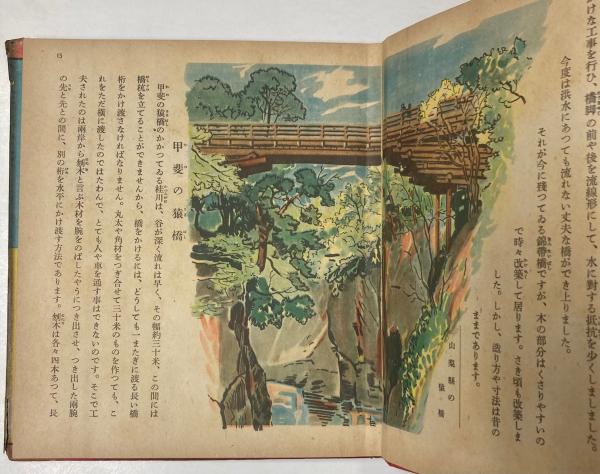 けな工事を行ひ、橋脚の前や後を流線形にして、水に對する抵抗を少くしましました。
今度は洪水にあつても流れない丈夫な橋ができ上りました。
それが今に殘つてゐる錦帶橋ですが、木の部分はくさりやすいの
で時々改築して居ります。さき頃も改築しま
した。しかし、造り方や寸法は昔の
ままであります。
山梨縣の
猿橋
甲斐の猿橋
甲斐の猿橋のかかつてゐる桂川は、谷が深く流れは早く、その幅約三十米、この間には
橋杭を立てることができませんから、橋をかけるには、どうしても一またぎに渡る長い橋
桁をかけ渡さなければなりません。丸太や角材をつぎ合せて三十米のものを作つても、こ
れをただ橫に渡したのではたわんで、とても人や車を通す事はできないのです。そこで工
夫されたのは兩岸から刎木と言ふ木材を腕をのばしたやうにつき出させ、つき出した兩腕
の先と先との間に、別の桁を水平にかけ渡す方法であります。刎木は各々四本あつて、長
15